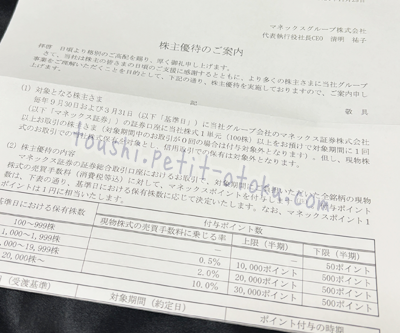 マネックスグループ株式会社
代表執行役社長CEO 清明 祐子
株主優待のご案内
拝啓 日頃より格別のご高配を賜り、厚く御礼申し上げます。
さて、当社は株主の皆さまの日頃のご支援に感謝するとともに、より多くの株主さまに当社グループ
事業をご理解いただくことを目的として、下記の通り、株主優待を実施しておりますので、ご案内申し
上げます。
敬 具
記
(1) 対象となる株主さま
毎年9月30日および3月31日(以下「基準日」)に当社グループ会社のマネックス証券株式会社
(以下「マネックス証券」)の証券口座に当社株式1単元(100株)以上をお預けで対象期間に1回
toushi.petit-otoku.com
(2) 株主優待の内容
ポイントは1円に相当いたします。
基準日における保有株数
現物株式の売買手数料に乗じる率
付与ポイント数
上限(半期)
下限(半期)
100~999株
－
－
50ポイント
1,000~1,999株
0.5%
10,000ポイント
500ポイント
,000~19,999株
2.0%
20,000ポイント
500ポイント
20,000株~
10.0%
30,000ポイント
500ポイント
(受渡基準)
対象期間(約定日)
ポイント付与の時期